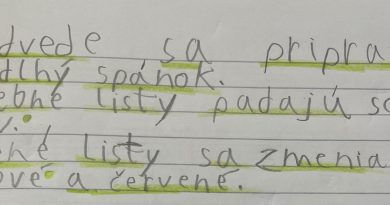 dvede sa pripra
dlhý spánok.
ebné listy padajú so
y.
né listy sa zmenia
ové a červené.